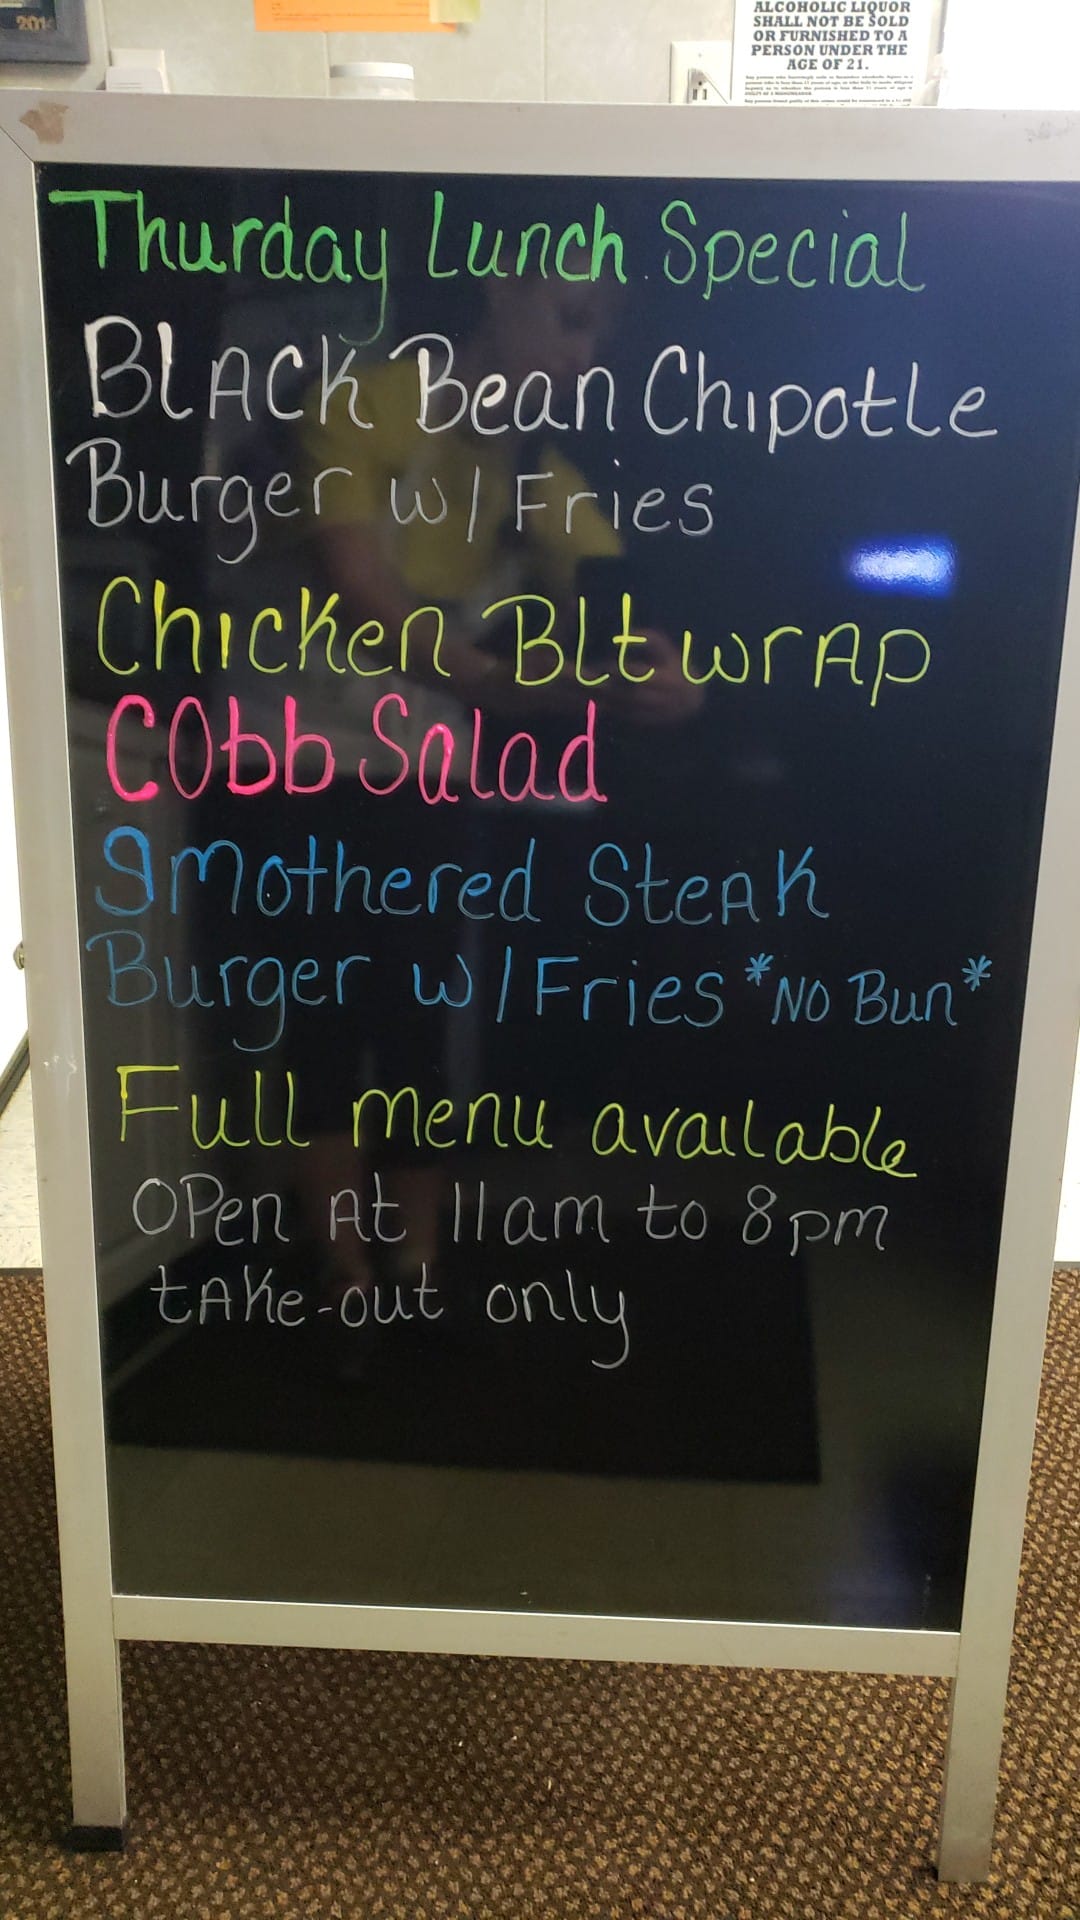 201
ALCOHOLIC LIQUOR
SHALL NOT BE SOLD
OR FURNISHED TO A
PERSON UNDER THE
AGE OF 21.
Thurday Lunch Special
BLACK Bean Chipotle
Burger w/ Fries
Chicken Blt wrAp
CObb Salad
SMothered SteAk
Burger w/ Fries *NO Bun*
Full menu available
OPen At 11am to 8pm
tAke-out only